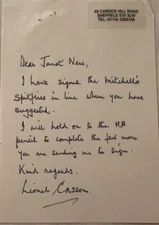 40 CARSICK HILL ROAD
SHEFFIELD S10 3LW
TEL. (0114)
Dear Janet New,
I have signed the Mitchell's
Spitfires in line where you have
suggested.
I will hold on to the HB
pencil to complete the few more
you are sending me to sign.
Kind regards.
Lionel Casson.